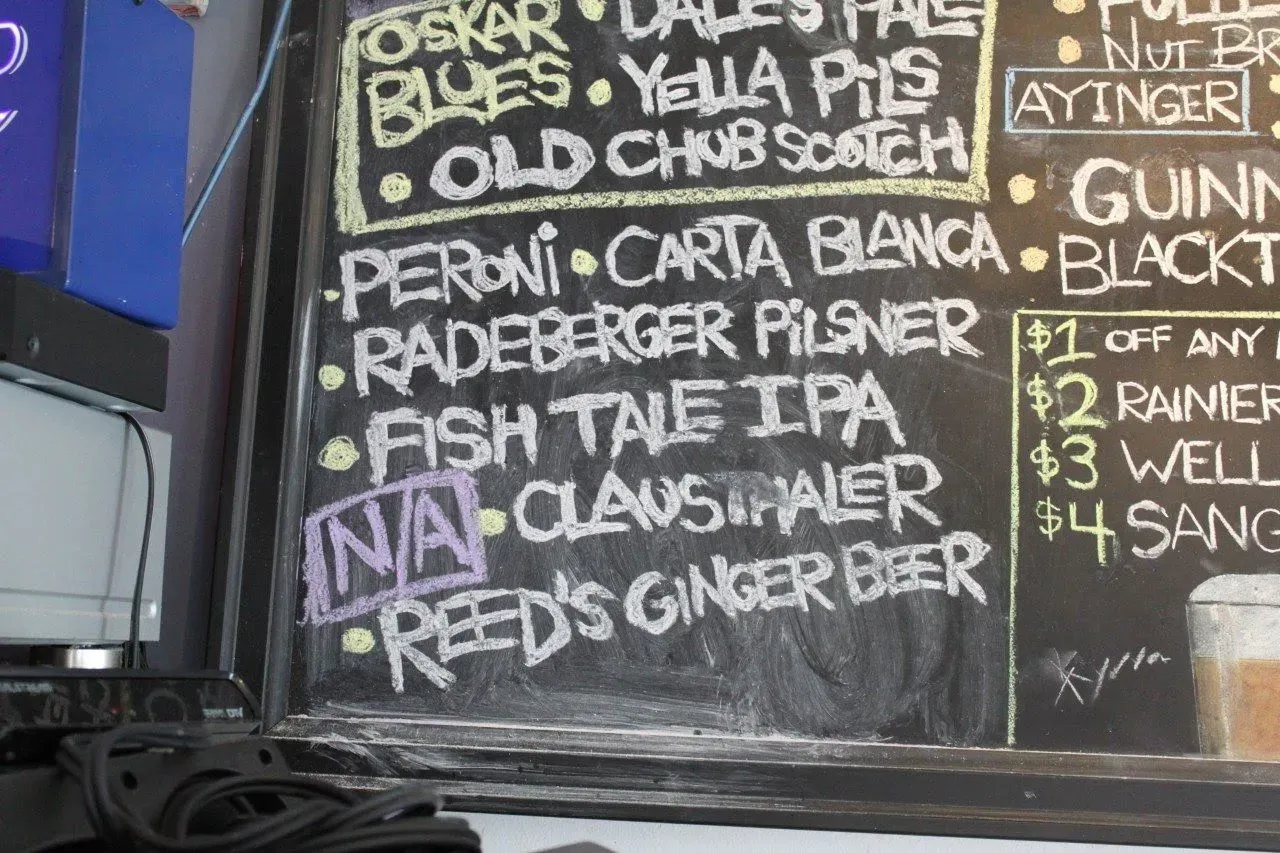 OSKAR BLUES
• DALE'S PALE
• YELLA PILS
• OLD CHUB SCOTCH
• PERONI • CARTA BLANCA
• RADEBERGER PILSNER
• FISH TALE IPA
N/A • CLAUSTHALER
• REED'S GINGER BEER
• NUT BR
AYINGER
• GUINN
• BLACKT
$1 OFF ANY
$2 RAINIER
$3 WELL
$4 SANG